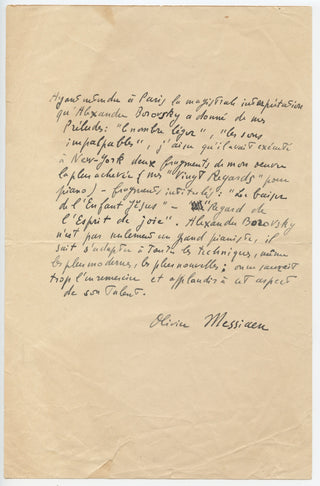 Ayant entendu à Paris la magistrale interprétation
qu'Alexandre Borovsky a donné de mes
Préludes: "le nombre léger", "les sons
impalpables", j'ai su qu'il avait exécuté
à New-York deux fragments de mon œuvre
la plus achevée (mes "Vingt Regards" pour
piano) - fragments intitulés: "Le baiser
de l'Enfant Jésus" - "Regard de
l'Esprit de joie". Alexandre Borovsky
n'est pas seulement un grand pianiste, il
sait s'adapter à toutes les techniques, même
les plus modernes, les plus nouvelles; on ne saurait
trop l'en remercier et applaudir à cet aspect
de son talent.
Olivier Messiaen